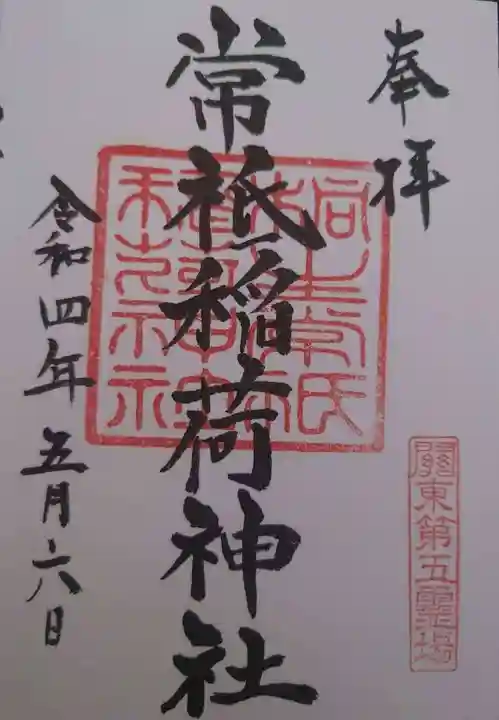 奉拝
關東第五靈場
常祇稲荷神社
令和四年五月六日